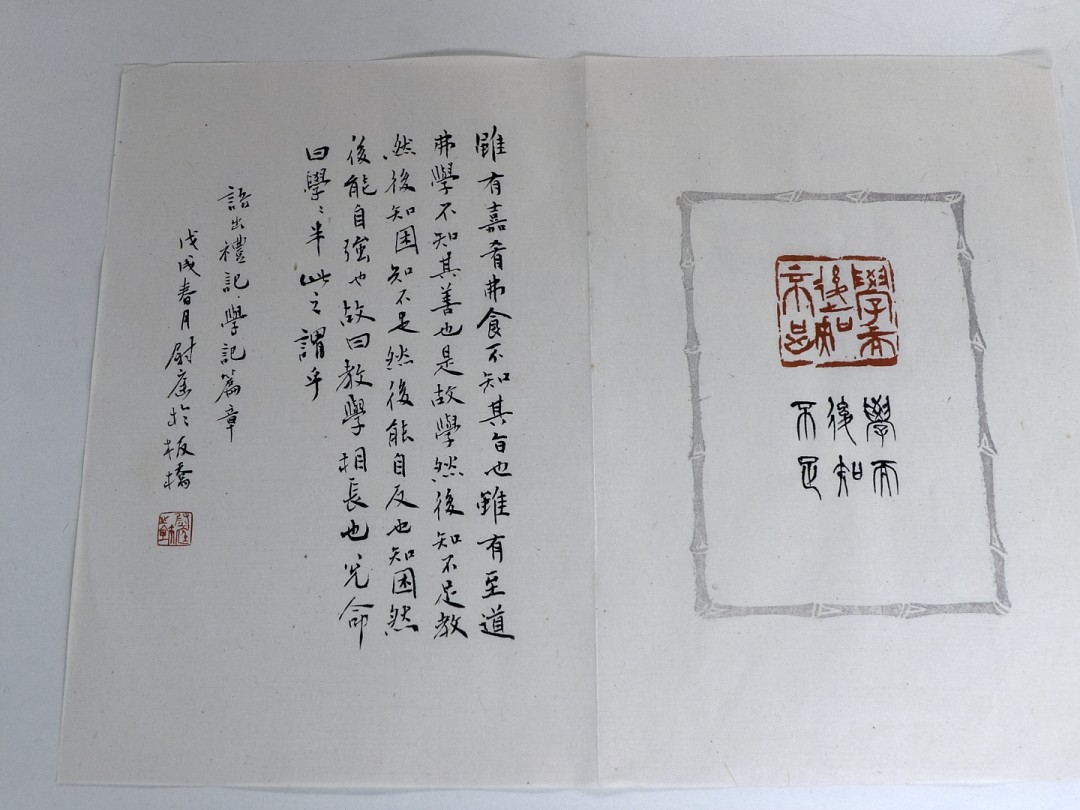 學而
後知
不足
學而
後知
不足
雖有嘉肴弗食不知其旨也雖有至道
弗學不知其善也是故學然後知不足教
然後知困知不足然後能自反也知困然
後能自強也故曰教學相長也兌命
曰學〻半此之謂乎
語出禮記·學記篇章
戊戌春月尉於板橋